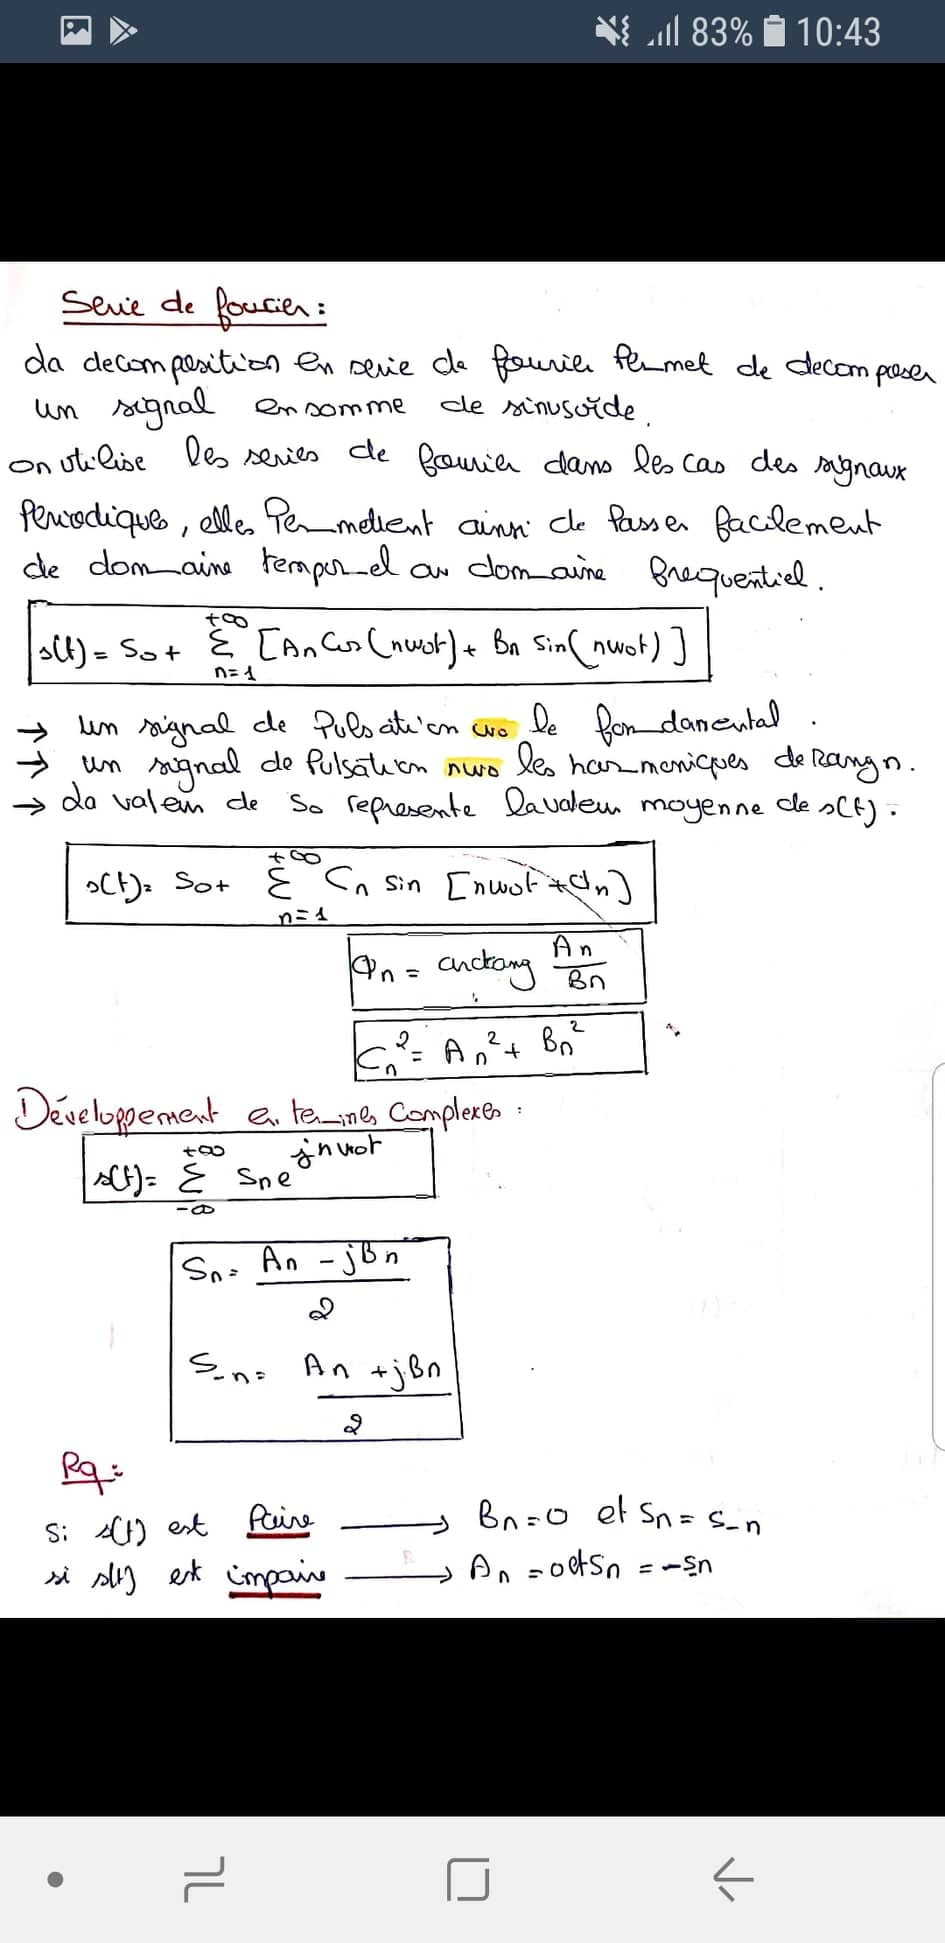 83% 10:43
Serie de fourier :
La decomposition en serie de fourier permet de decomposer
un signal en somme de sinusoïde.
on utilise les series de fourier dans les cas des signaux
Periodiques, elles Permettent ainsi de Passer facilement
de domaine temporel au domaine frequentiel.
s(t) = S0 + Σ n=1 +∞ [An Cos(nw0t) + Bn sin(nw0t)]
→ un signal de Pulsation w0 le fondamental.
→ un signal de Pulsation nw0 les harmoniques de Rang n.
→ La valeur de S0 represente la valeur moyenne de s(t).
s(t) = S0 + Σ n=1 +∞ Cn sin [nw0t + φn]
φn = arctang An/Bn
Cn² = An² + Bn²
Développement en termes Complexes :
s(t) = Σ -∞ +∞ Sn e^jnw0t
Sn = An - jBn / 2
S-n = An + jBn / 2
Rq :
Si s(t) est Paire → Bn = 0 et Sn = S-n
si s(t) est impaire → An = 0 et Sn = -Sn